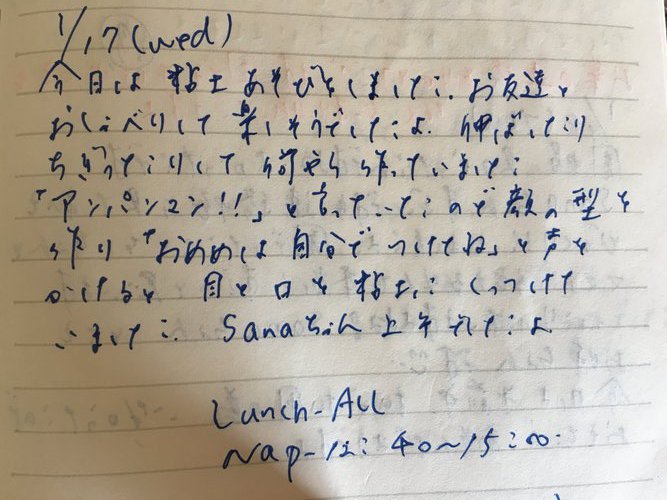 1/17(wed)
今日は粘土あそびをしました。お友達と
おしゃべりして楽しそうでしたよ。伸ばしたり
ちぎったりして何やら作っていました。
「アンパンマン!!」と言っていたので顔の型を
作り「おめめは自分でつけてね」と声を
かけると目と口を粘土にくっつけて
いました。Sanaちゃん上手でしたよ
Lunch-All
Nap-12:40~15:00